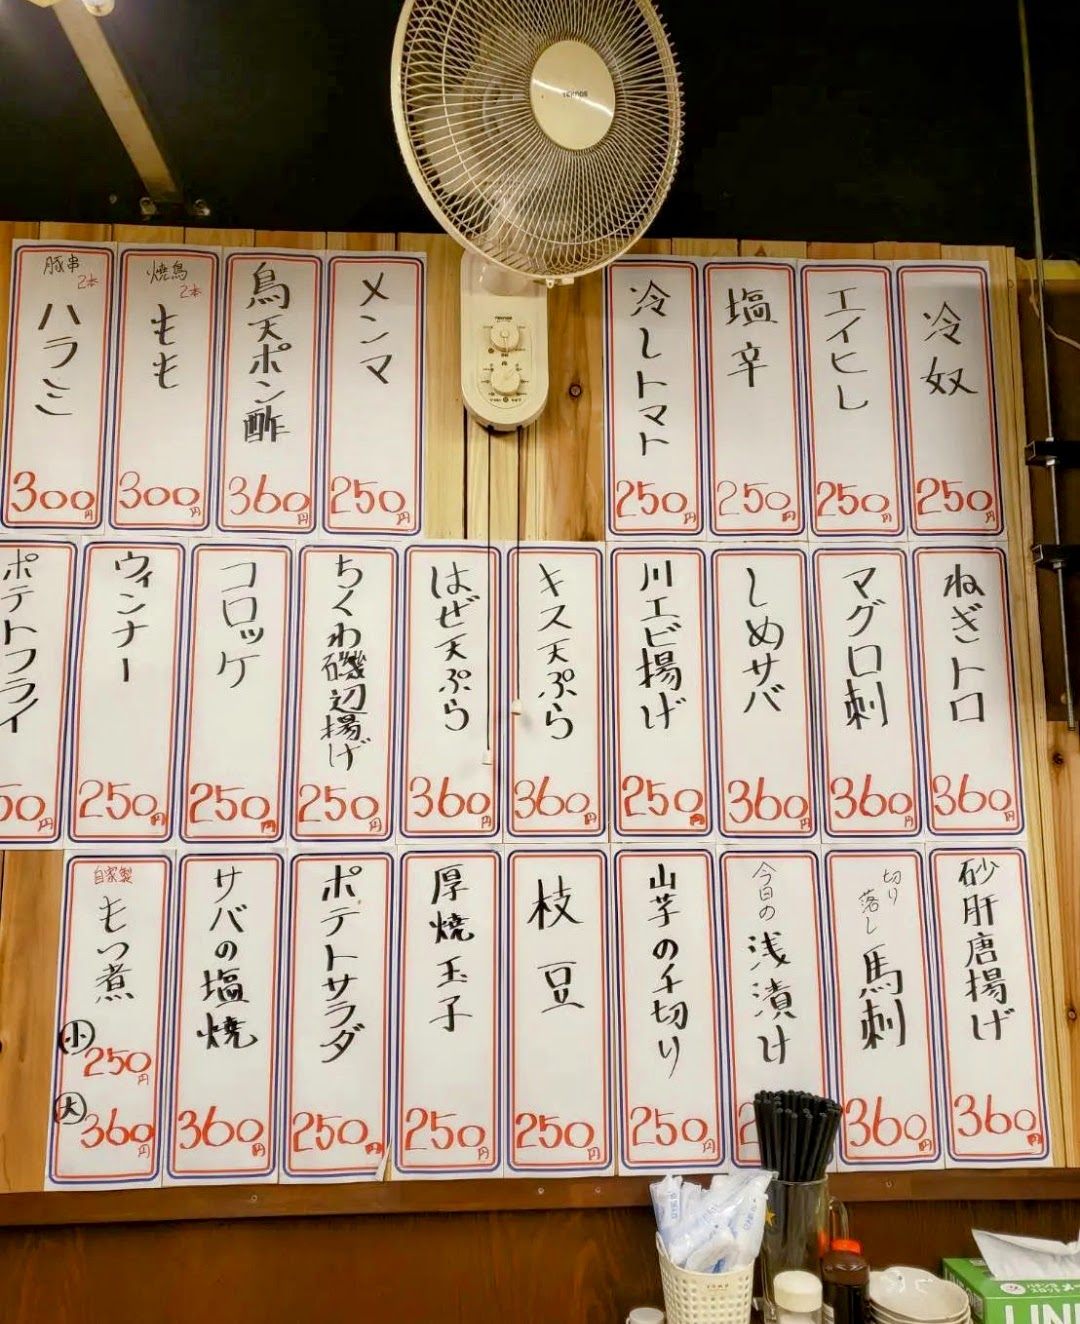 冷奴
250円
エイヒレ
250円
塩辛
250円
冷しトマト
250円
メンマ
250円
鳥天ポン酢
360円
焼鳥
2本
もも
300円
豚串
2本
ハラミ
300円
ねぎトロ
360円
マグロ刺
360円
しめサバ
360円
川エビ揚げ
250円
キス天ぷら
360円
はぜ天ぷら
360円
ちくわ磯辺揚げ
250円
コロッケ
250円
ウィンナー
250円
ポテトフライ
50円
砂肝唐揚げ
360円
切り
落し
馬刺
360円
今日の
浅漬け
2
山芋の千切り
250円
枝豆
250円
厚焼玉子
250円
ポテトサラダ
250円
サバの塩焼
360円
自家製
もつ煮
小
250円
大
360円
LIN